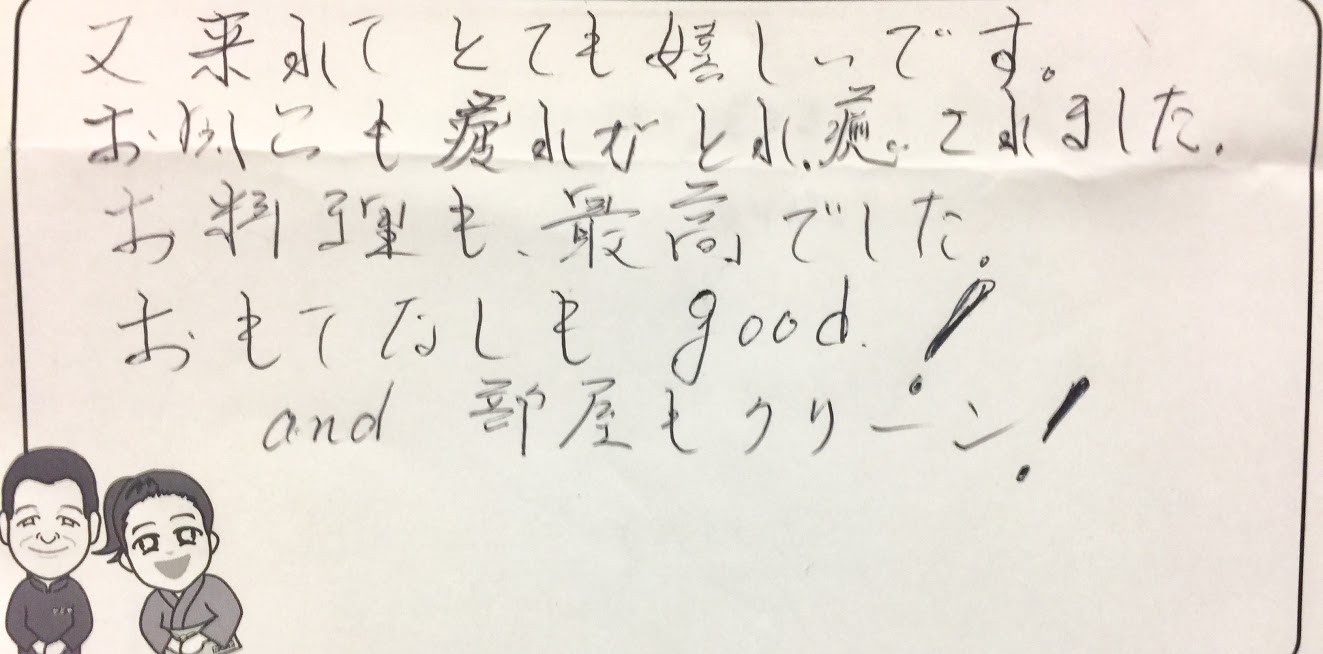 又来れてとても嬉しいです。
おふろも疲れがとれ、癒されました。
お料理も、最高でした。
おもてなしも good!
and 部屋もクリーン!